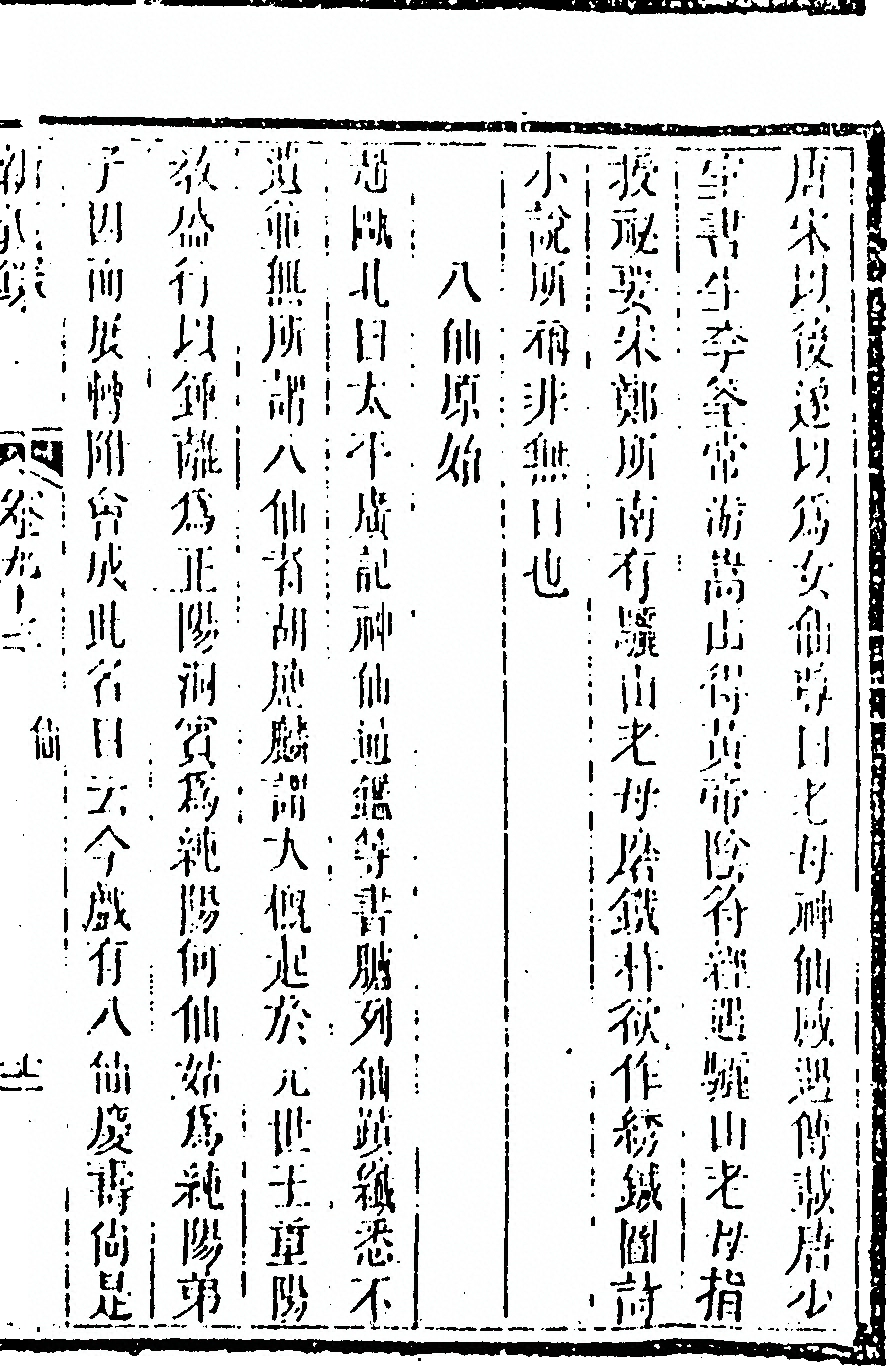 唐宋以後遂以爲女仙尊曰老母神仙感遇傳載唐少
室書生李筌常游嵩山得黃帝陰符經遇驪山老母指
授祕要宋鄭所南有驪山老母磨鐵杵欲作綉鍼圖詩
小說所稱非無因也
八仙原始
趙甌北曰太平廣記神仙通鑑等書臚列仙蹟纖悉不
遺並無所謂八仙者胡應麟謂大槪起於元世王重陽
教盛行以鍾離爲正陽洞賓爲純陽何仙姑爲純陽弟
子因而展轉附會成此名目云今戲有八仙慶壽尙是
卷九十三
仙